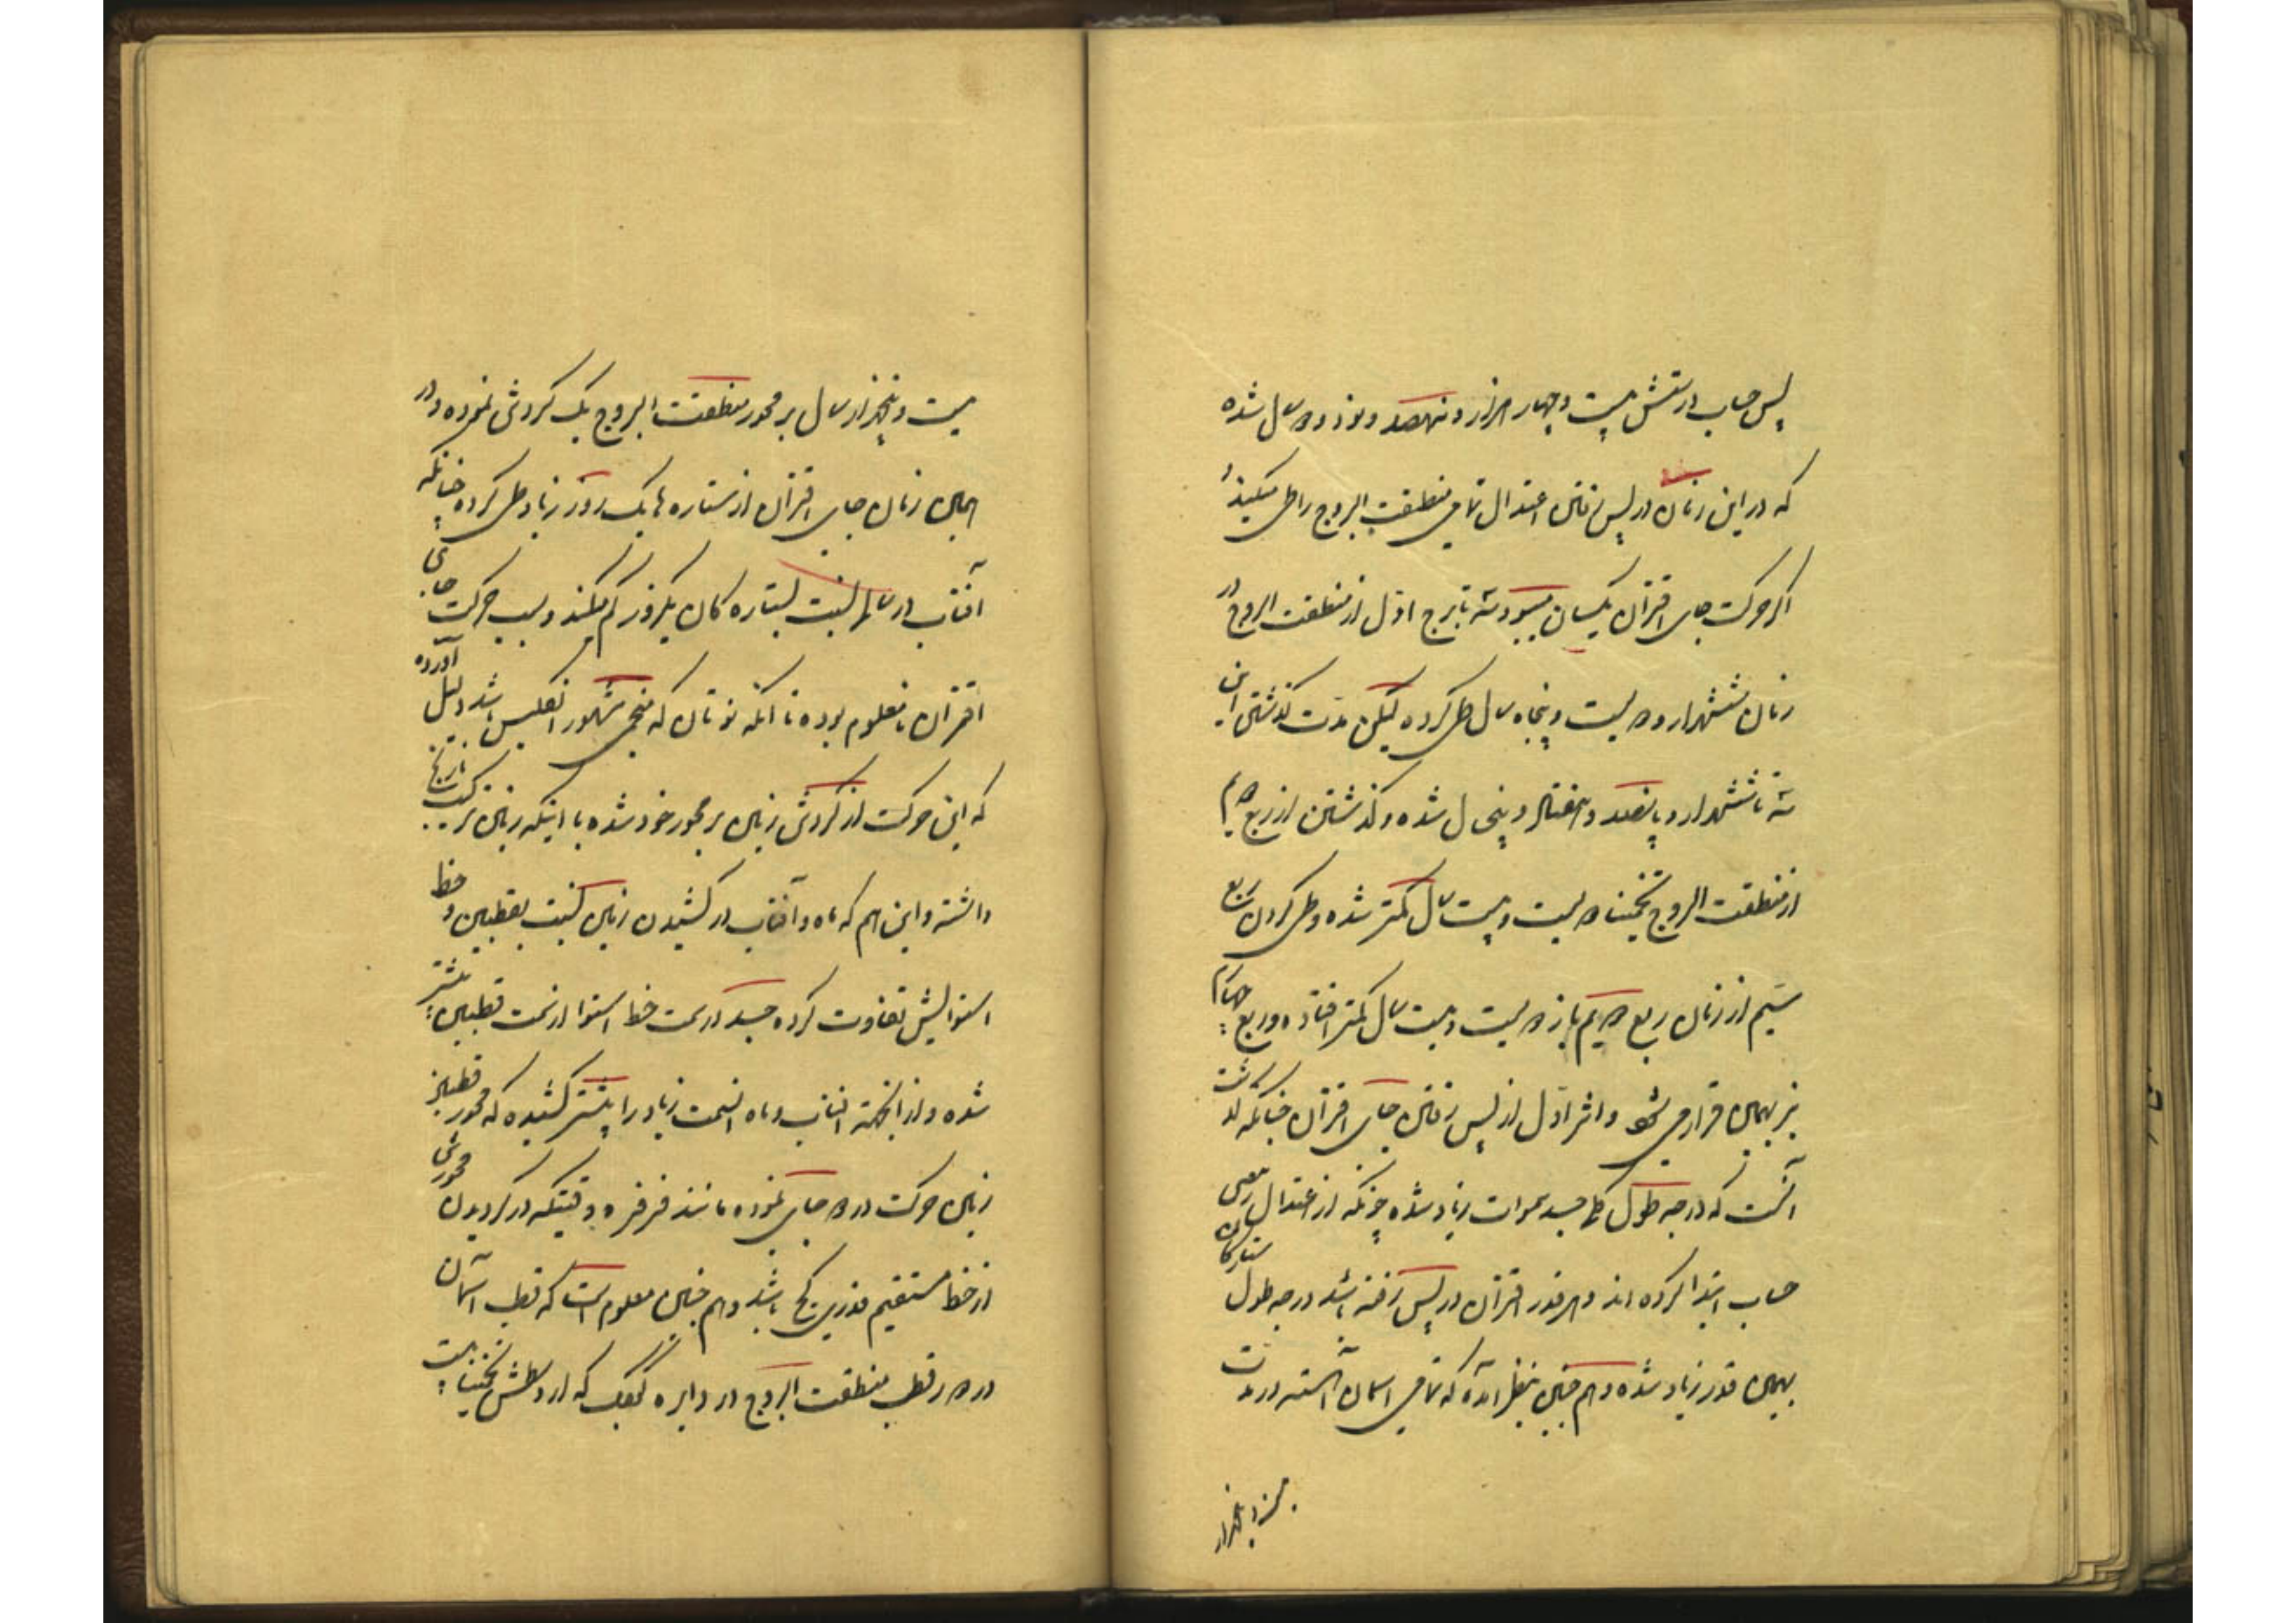 پس حساب درستش بیست و چهار هزار و نهصد و نود و دو سال شده
که در این زمان در پس رفتن اعتدال تمامی منطقت البروج را طی میکند و
اگر حرکت جای اقتران یکسان میبود سه تا برج اول از منطقت البروج در
زمان ششهزار و دویست و پنجاه سال طی کرده لیکن مدت گذشتن این
سه تا ششهزار و پانصد و هفتاد و پنج سال شده و گذشتن از ربع دویم
از منطقت البروج تخمینا دویست و بیست سال کمتر شده و طی کردن ربع
سیم از زمان ربع دویم باز دویست و بیست سال کمتر افتاده و ربع چهارم
نیز بهمین قرار می شود و اثر اول از پس رفتن جای اقتران چنانکه گذشت
آنست که درجه طول کل جسد سموات زیاد شده چونکه از اعتدال ربیعی
حساب ابتدا کرده اند و هر قدر اقتران در پس رفته باشد درجه طول ستارگان
بهمین قدر زیاد شده و هم چنین بنظر آمده که تمامی آسمان آهسته در مدت
بیست و پنجهزار
بیست و پنجهزار سال بر محور منطقت البروج یک گردشی نموده و در
همین زمان جای اقتران از ستاره ها یک روز زیاد طی کرده چنانکه
آفتاب در سالها نسبت بستاره گان یکروز کم میکند و سبب حرکت جای
اقتران نامعلوم بوده تا آنکه نوتان که منجم مشهور انگلیس باشد دلیل آورده
که این حرکت از گردش زمین بر محور خود شده با اینکه زمین ترکیب نارنج
داشته و این هم که ماه و آفتاب در کشیدن زمین نسبت بقطبین و خط
استوایش تفاوت کرده جسد در سمت خط استوا از سمت قطبین بیشتر
شده و از آنجهت آفتاب و ماه آنسمت زیاد را بیشتر کشیده که محور قطبین
زمین حرکت در دو جای نموده مانند فرفره وقتیکه در گردیدن محورش
از خط مستقیم قدری کج باشد و هم چنین معلوم است که قطب آسمان
در دور قطب منطقت البروج در دایره کوچک که از وسطش تخمینا بیست